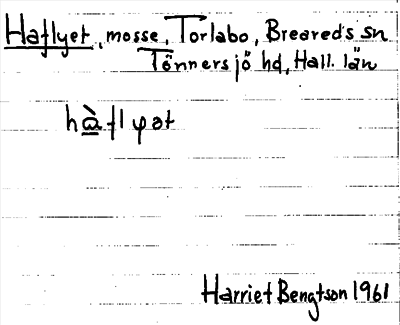 Haflyet, mosse, Torlabo, Breareds sn
Tönnersjö hd, Hall. län
hàflyət
Harriet Bengtson 1961